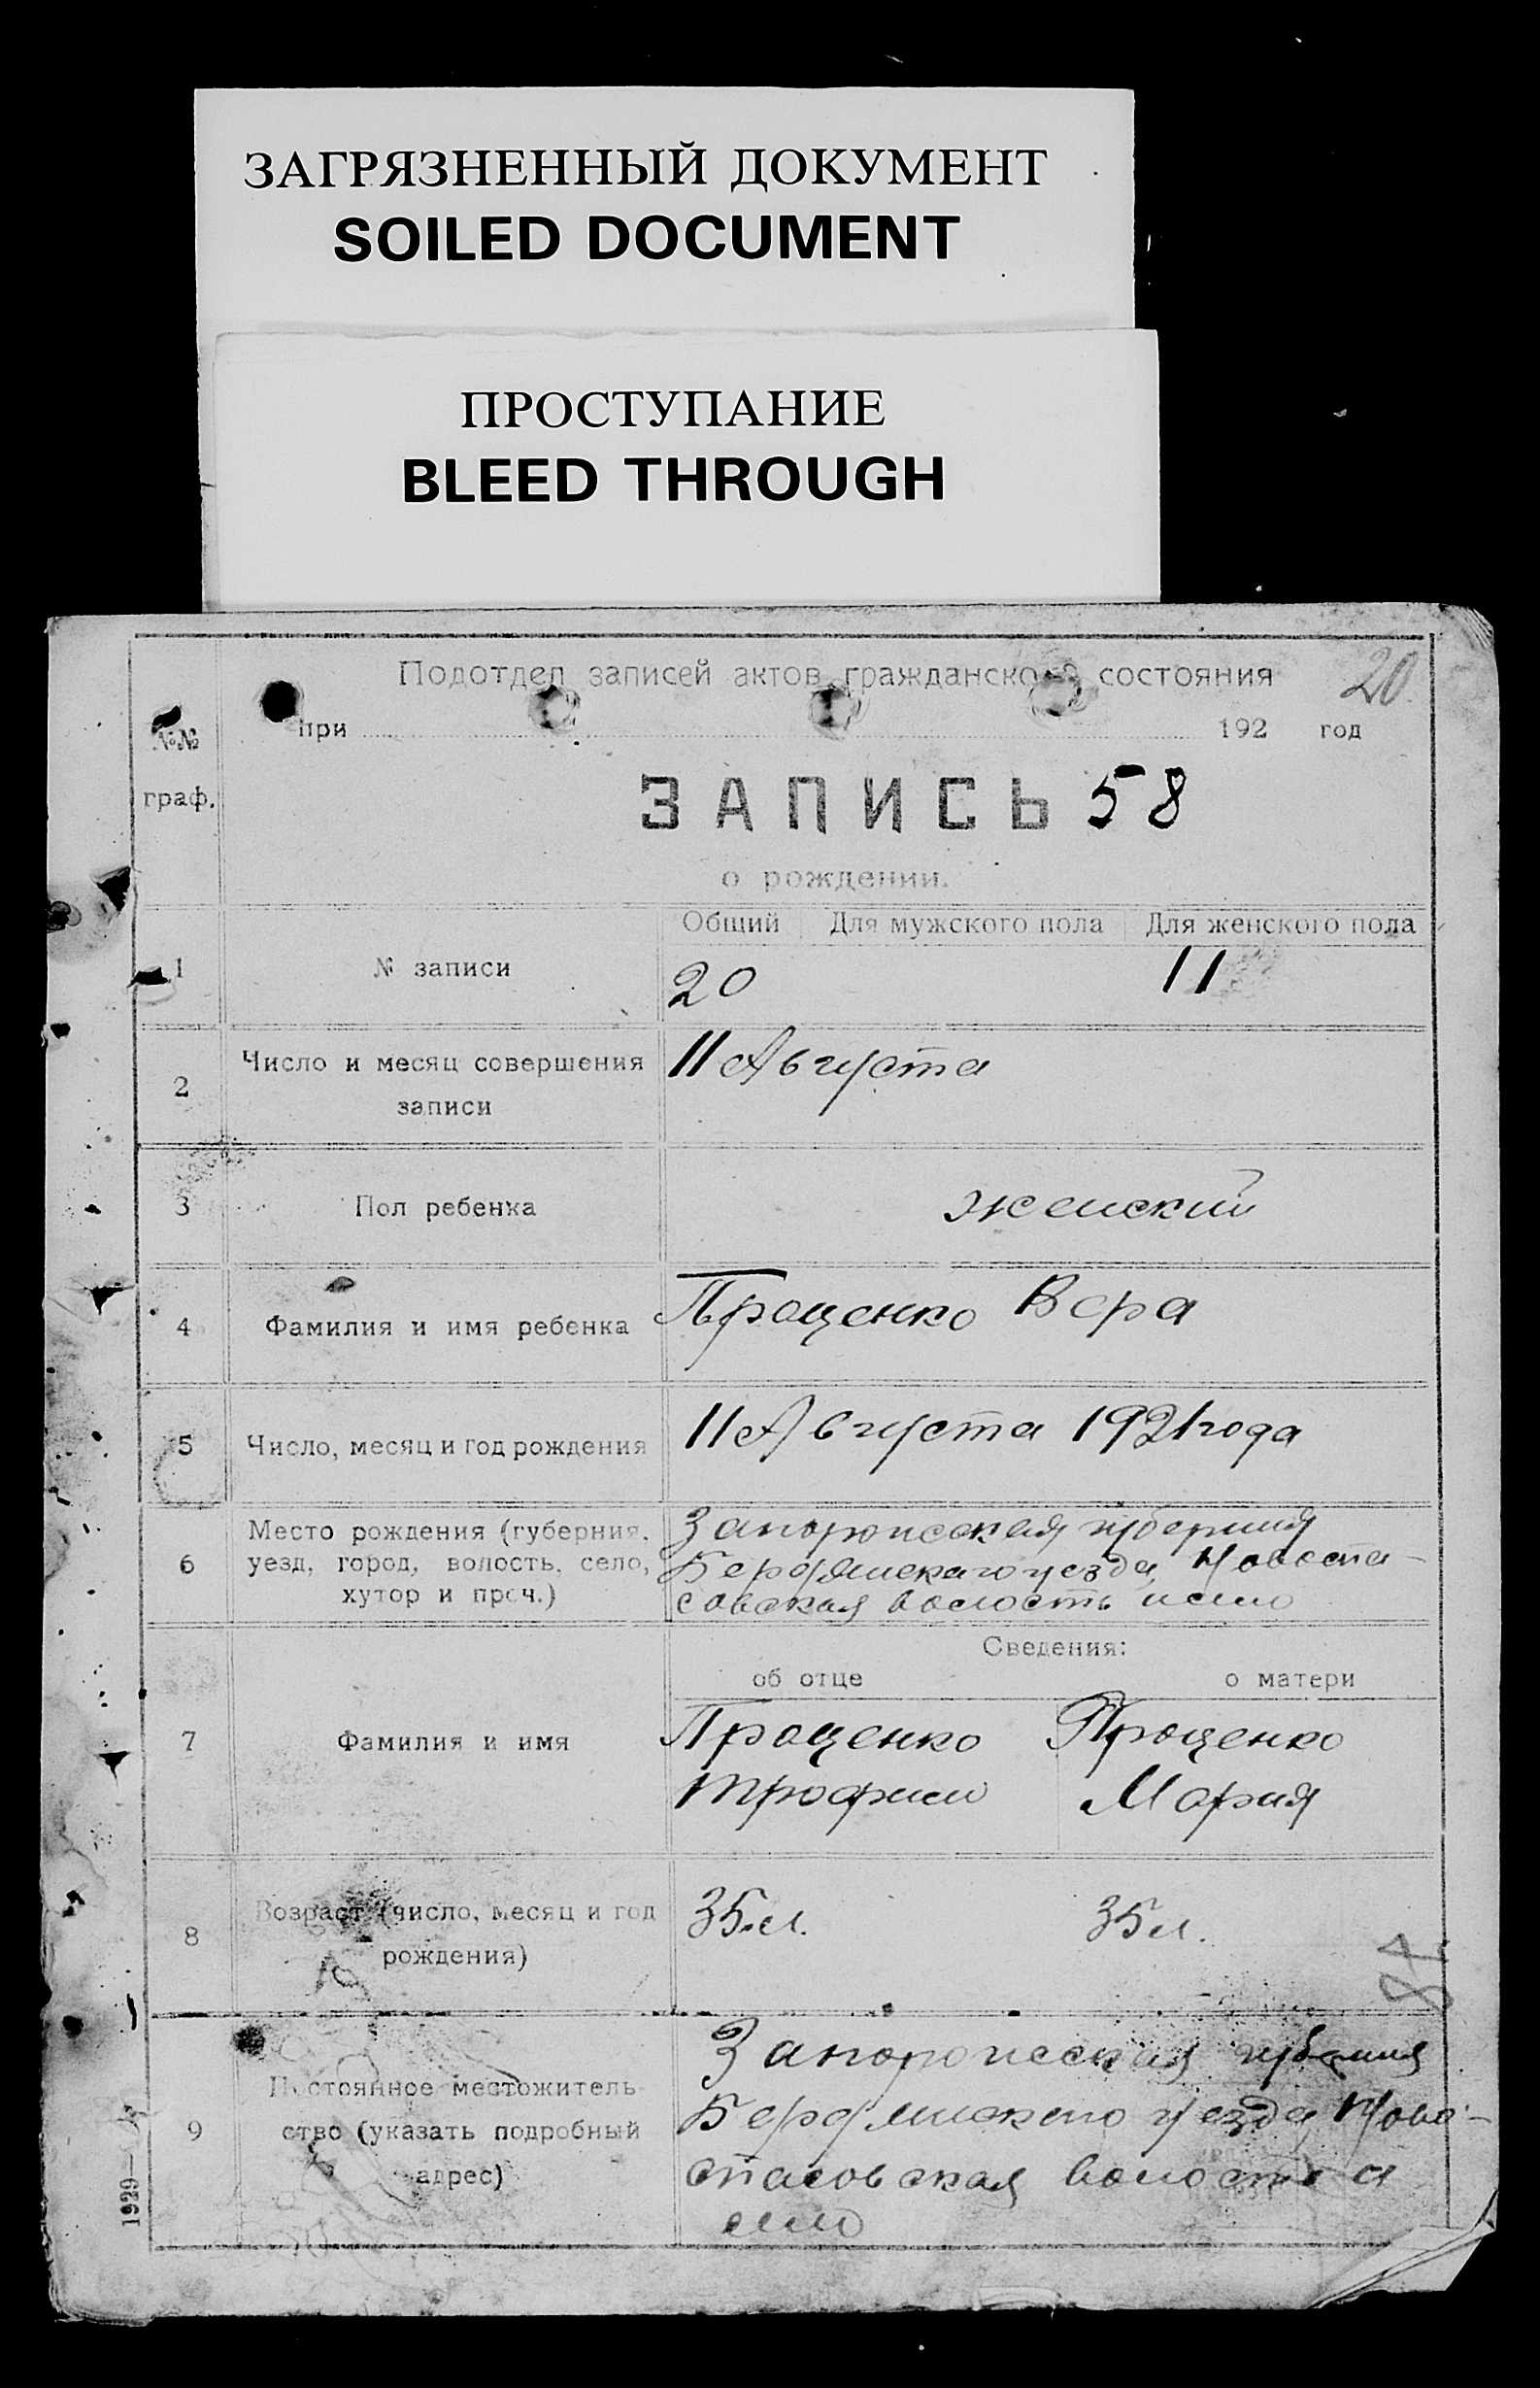 ЗАГРЯЗНЕННЫЙ ДОКУМЕНТ
SOILED DOCUMENT
ПРОСТУПАНИЕ
BLEED THROUGH
Подотдел записей актов гражданского состояния 20
№№
граф.
при 192 год
ЗАПИСЬ 58
о рождении.
Общий Для мужского пола Для женского пола
1 № записи 20 11
2 Число и месяц совершения
записи
11 Августа
3 Пол ребенка женский
4 Фамилия и имя ребенка Проценко Вера
5 Число, месяц и год рождения 11 Августа 1921 года
6 Место рождения (губерния,
уезд, город, волость, село,
хутор и проч.)
Запорожская губерния
Бердянскаго уезда Новоспа-
совская волость и село
Сведения:
об отце о матери
7 Фамилия и имя
Проценко Проценко
Трофим Мария
8 Возраст (число, месяц и год
рождения)
35 л. 35 л.
9 Постоянное местожитель-
ство (указать подробный
адрес)
Запорожская губерния
Бердянскаго уезда Ново-
спасовская волость и
село
1929